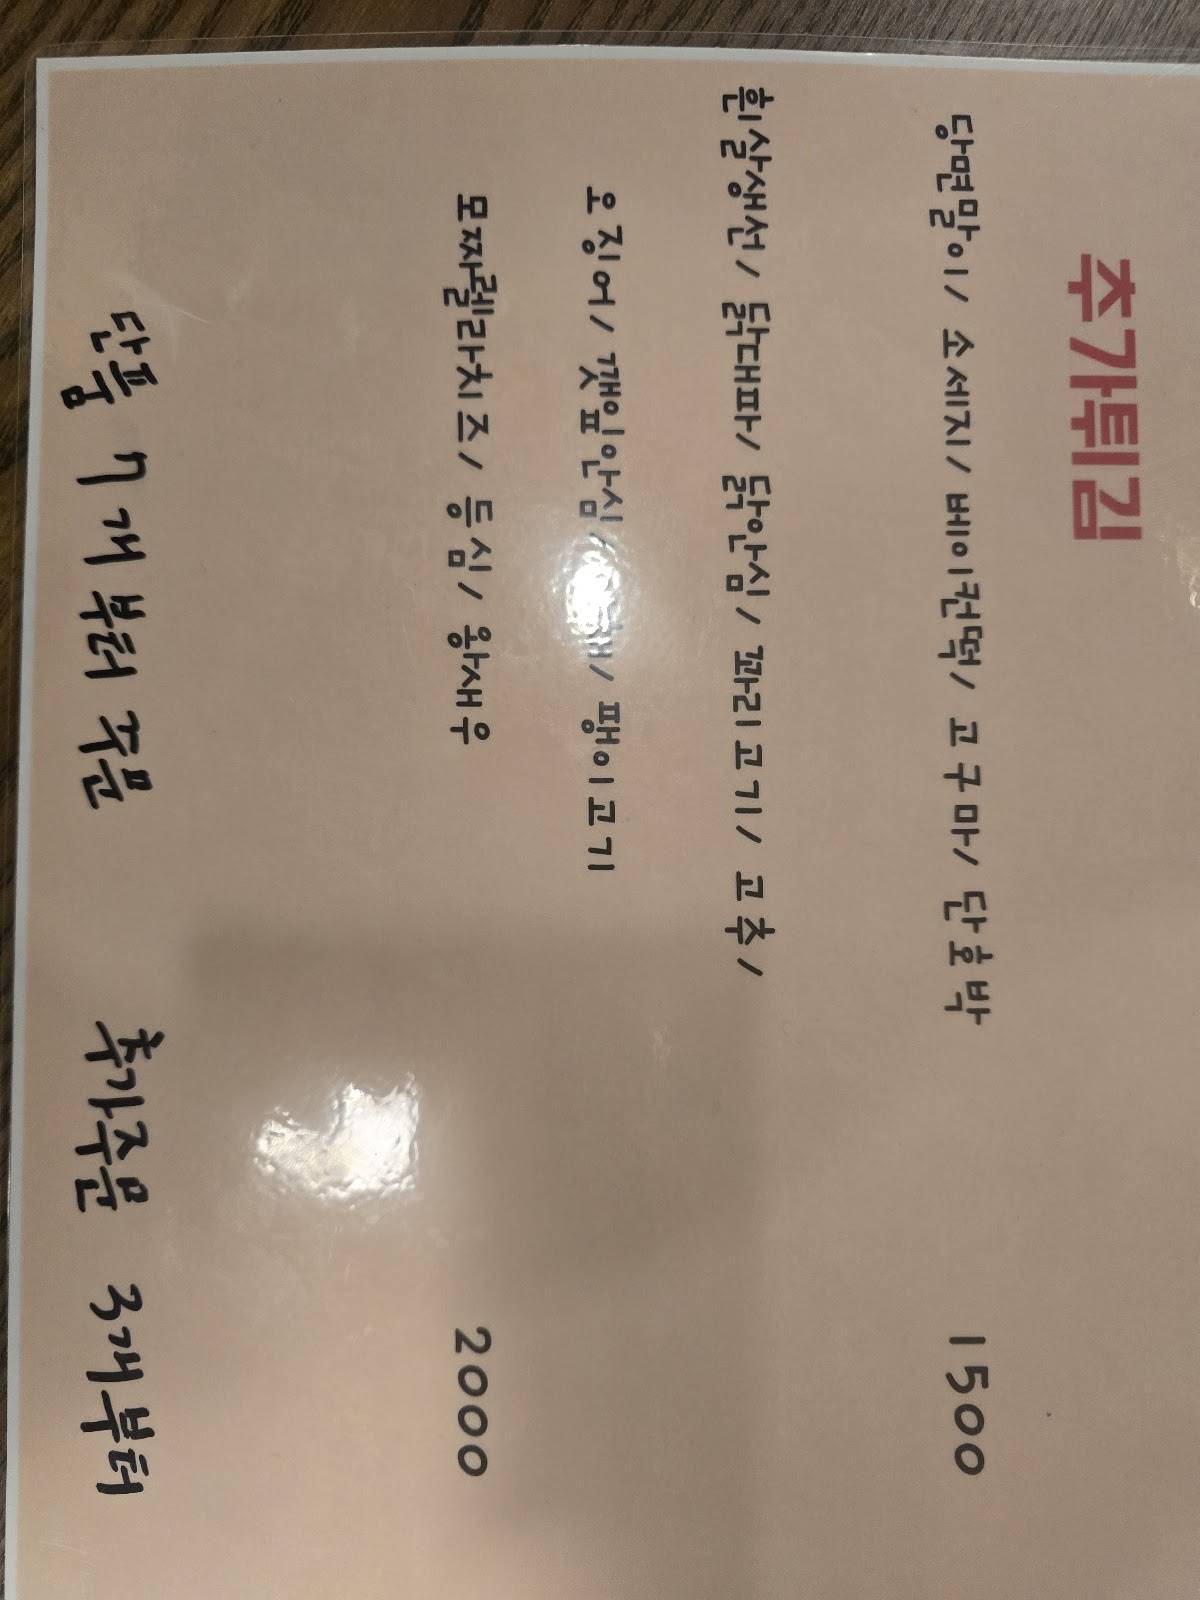 추가튀김
당면말이/ 소세지/ 베이컨떡/ 고구마/ 단호박 1500
흰살생선/ 닭대파/ 닭안심/ 꽈리고기/ 고추/
오징어/ 깻잎안심/ / 팽이고기
모짜렐라치즈/ 등심/ 왕새우 2000
단품 7개부터 주문 추가주문 3개부터